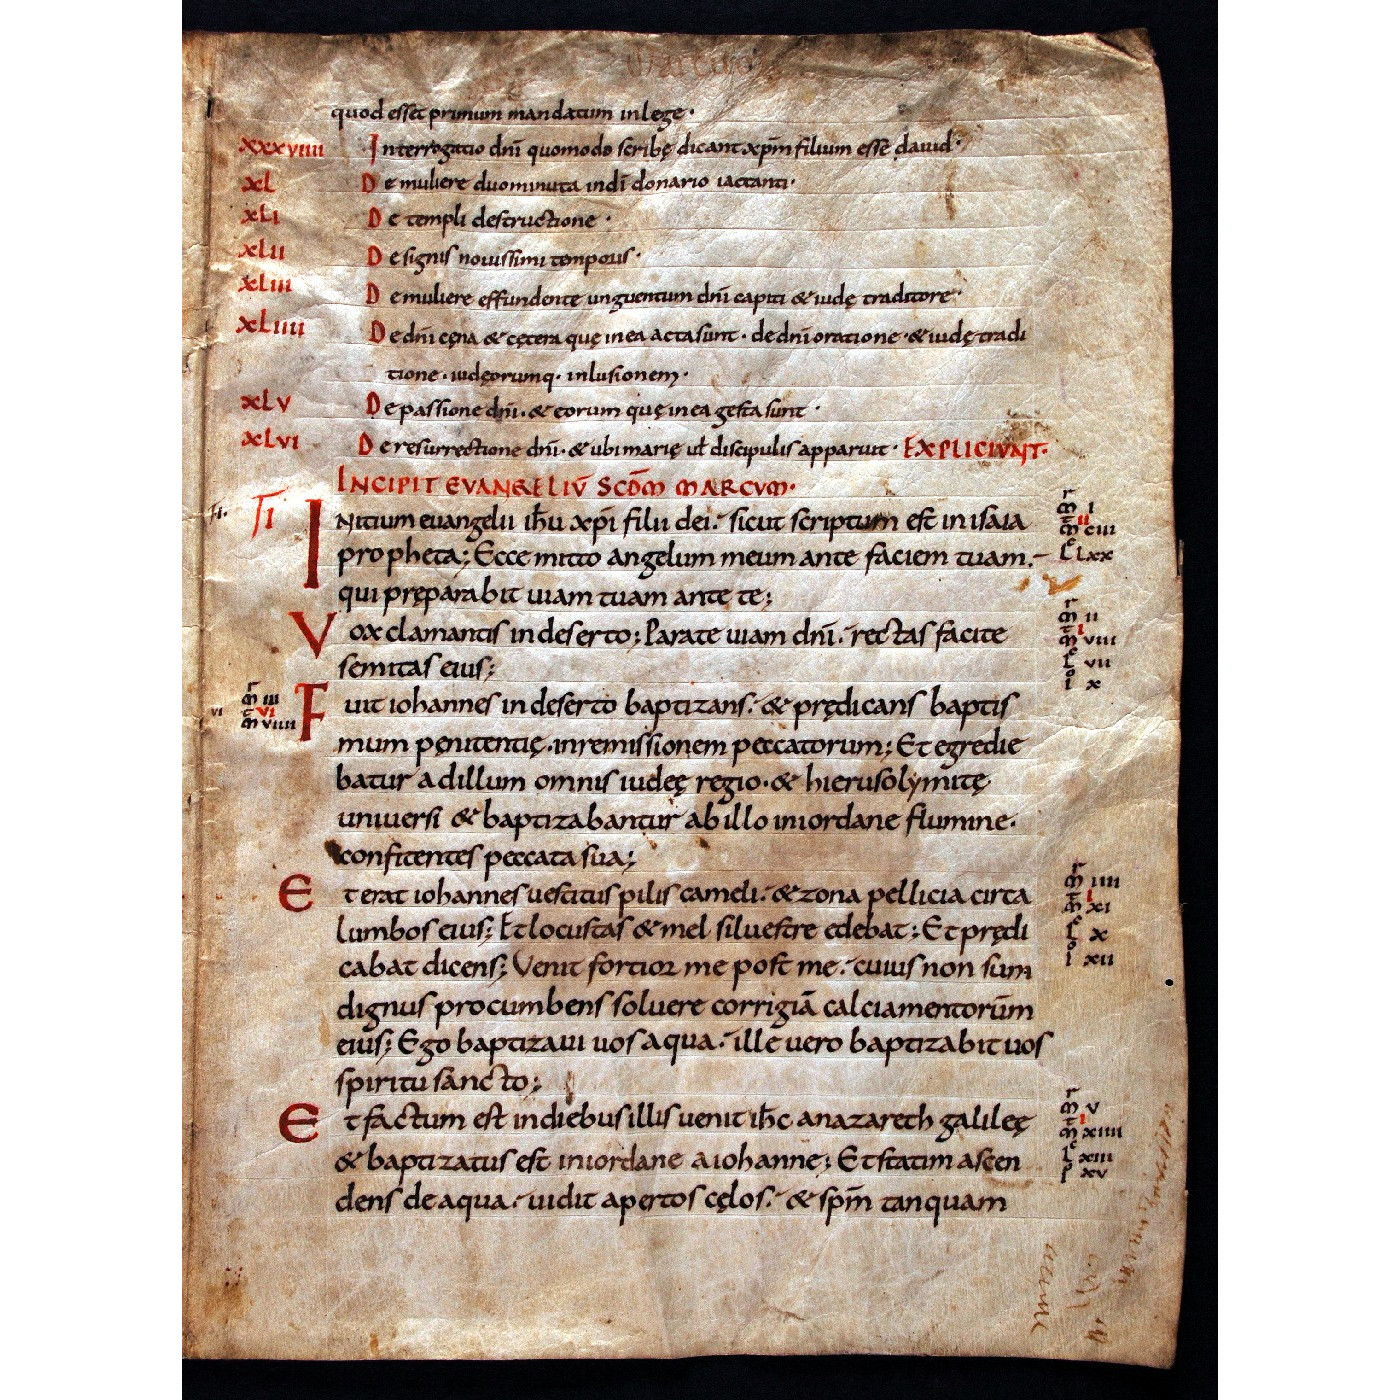 quod esset primum mandatum in lege·
XXXVIIII Interrogatio dnī quomodo scribę dicant xpm̄ filium esse dauid·
XL De muliere duo minuta in dī donario iactanti·
XLI De templi destructione·
XLII De signis nouissimi temporis·
XLIII De muliere effundente unguentum dnī capiti & iudę traditore·
XLIIII De dnī cęna & cętera quę in ea acta sunt· de dnī oratione· & iudę tradi
tione· iudęorumq· inlusionem·
XLV De passione dnī· & eorum quę in ea gesta sunt·
XLVI De resurrectione dnī· & ubi marię ul̄ discipulis apparuit· EXPLICIUNT·
INCIPIT EVANGELIŪ SCDM̄ MARCUM·
INitium euangelii ihū xpī filii dei· sicut scriptum est in isaia
propheta; Ecce mitto angelum meum ante faciem tuam·
qui pręparabit uiam tuam ante te;
Vox clamantis in deserto; Parate uiam dnī· rectas facite
semitas eius;
Fuit iohannes in deserto baptizans· & prędicans baptis
mum pęnitentię· in remissionem peccatorum; Et egredie
batur ad illum omnis iudeę regio· & hierusolymitę
uniuersi & baptizabantur ab illo in iordane flumine·
confitentes peccata sua;
Et erat iohannes uestitus pilis cameli· & zona pellicia circa
lumbos eius; Et locustas & mel siluestre edebat; Et prędi
cabat dicens; Venit fortior me post me· cuius non sum
dignus procumbens soluere corrigiā calciamentorūm
eius; Ego baptizaui uos aqua· ille uero baptizabit uos
spiritu sancto;
Et factum est in diebus illis uenit ihc̄ a nazareth galileę
& baptizatus est in iordane a iohanne; Et statim ascen
dens de aqua· uidit apertos cęlos· & spm̄ tanquam